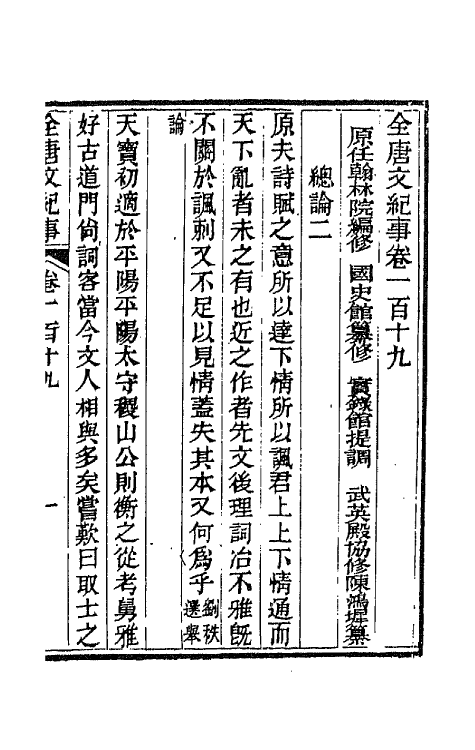 全唐文紀事卷一百十九
原任翰林院編修 國史館纂修 實錄館提調 武英殿協修陳鴻墀纂
總論二
原夫詩賦之意所以達下情所以諷君上上下情通而
天下亂者未之有也近之作者先文後理詞冶不雅旣
不關於諷刺又不足以見情蓋失其本又何爲乎劉秩選舉
論
天寶初適於平陽平陽太守稷山公則衡之從考舅雅
好古道門尙詞客當今文人相與多矣嘗歎曰取士之
全唐文紀事 卷一百十九 一